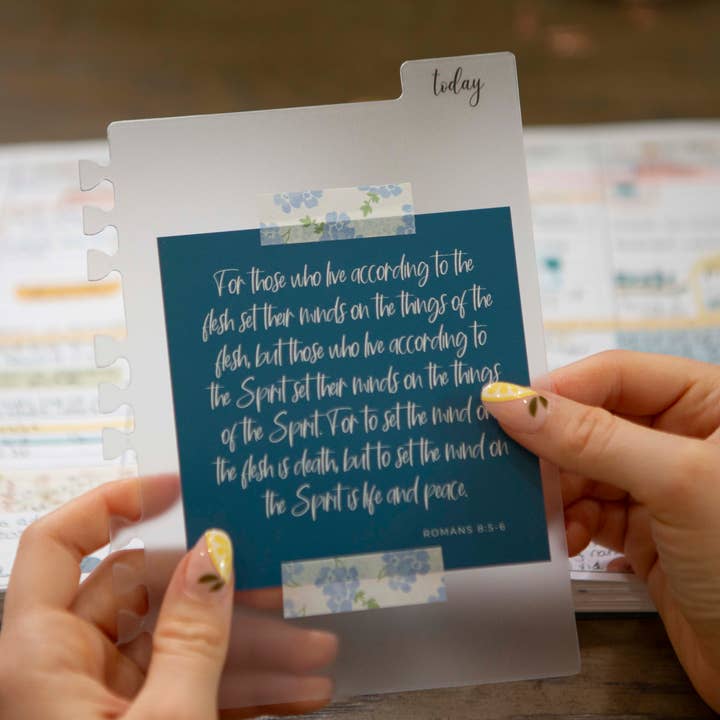 today
For those who live according to the
flesh set their minds on the things of the
flesh, but those who live according to
the Spirit set their minds on the things
of the Spirit. For to set the mind on
the flesh is death, but to set the mind on
the Spirit is life and peace.
ROMANS 8:5-6